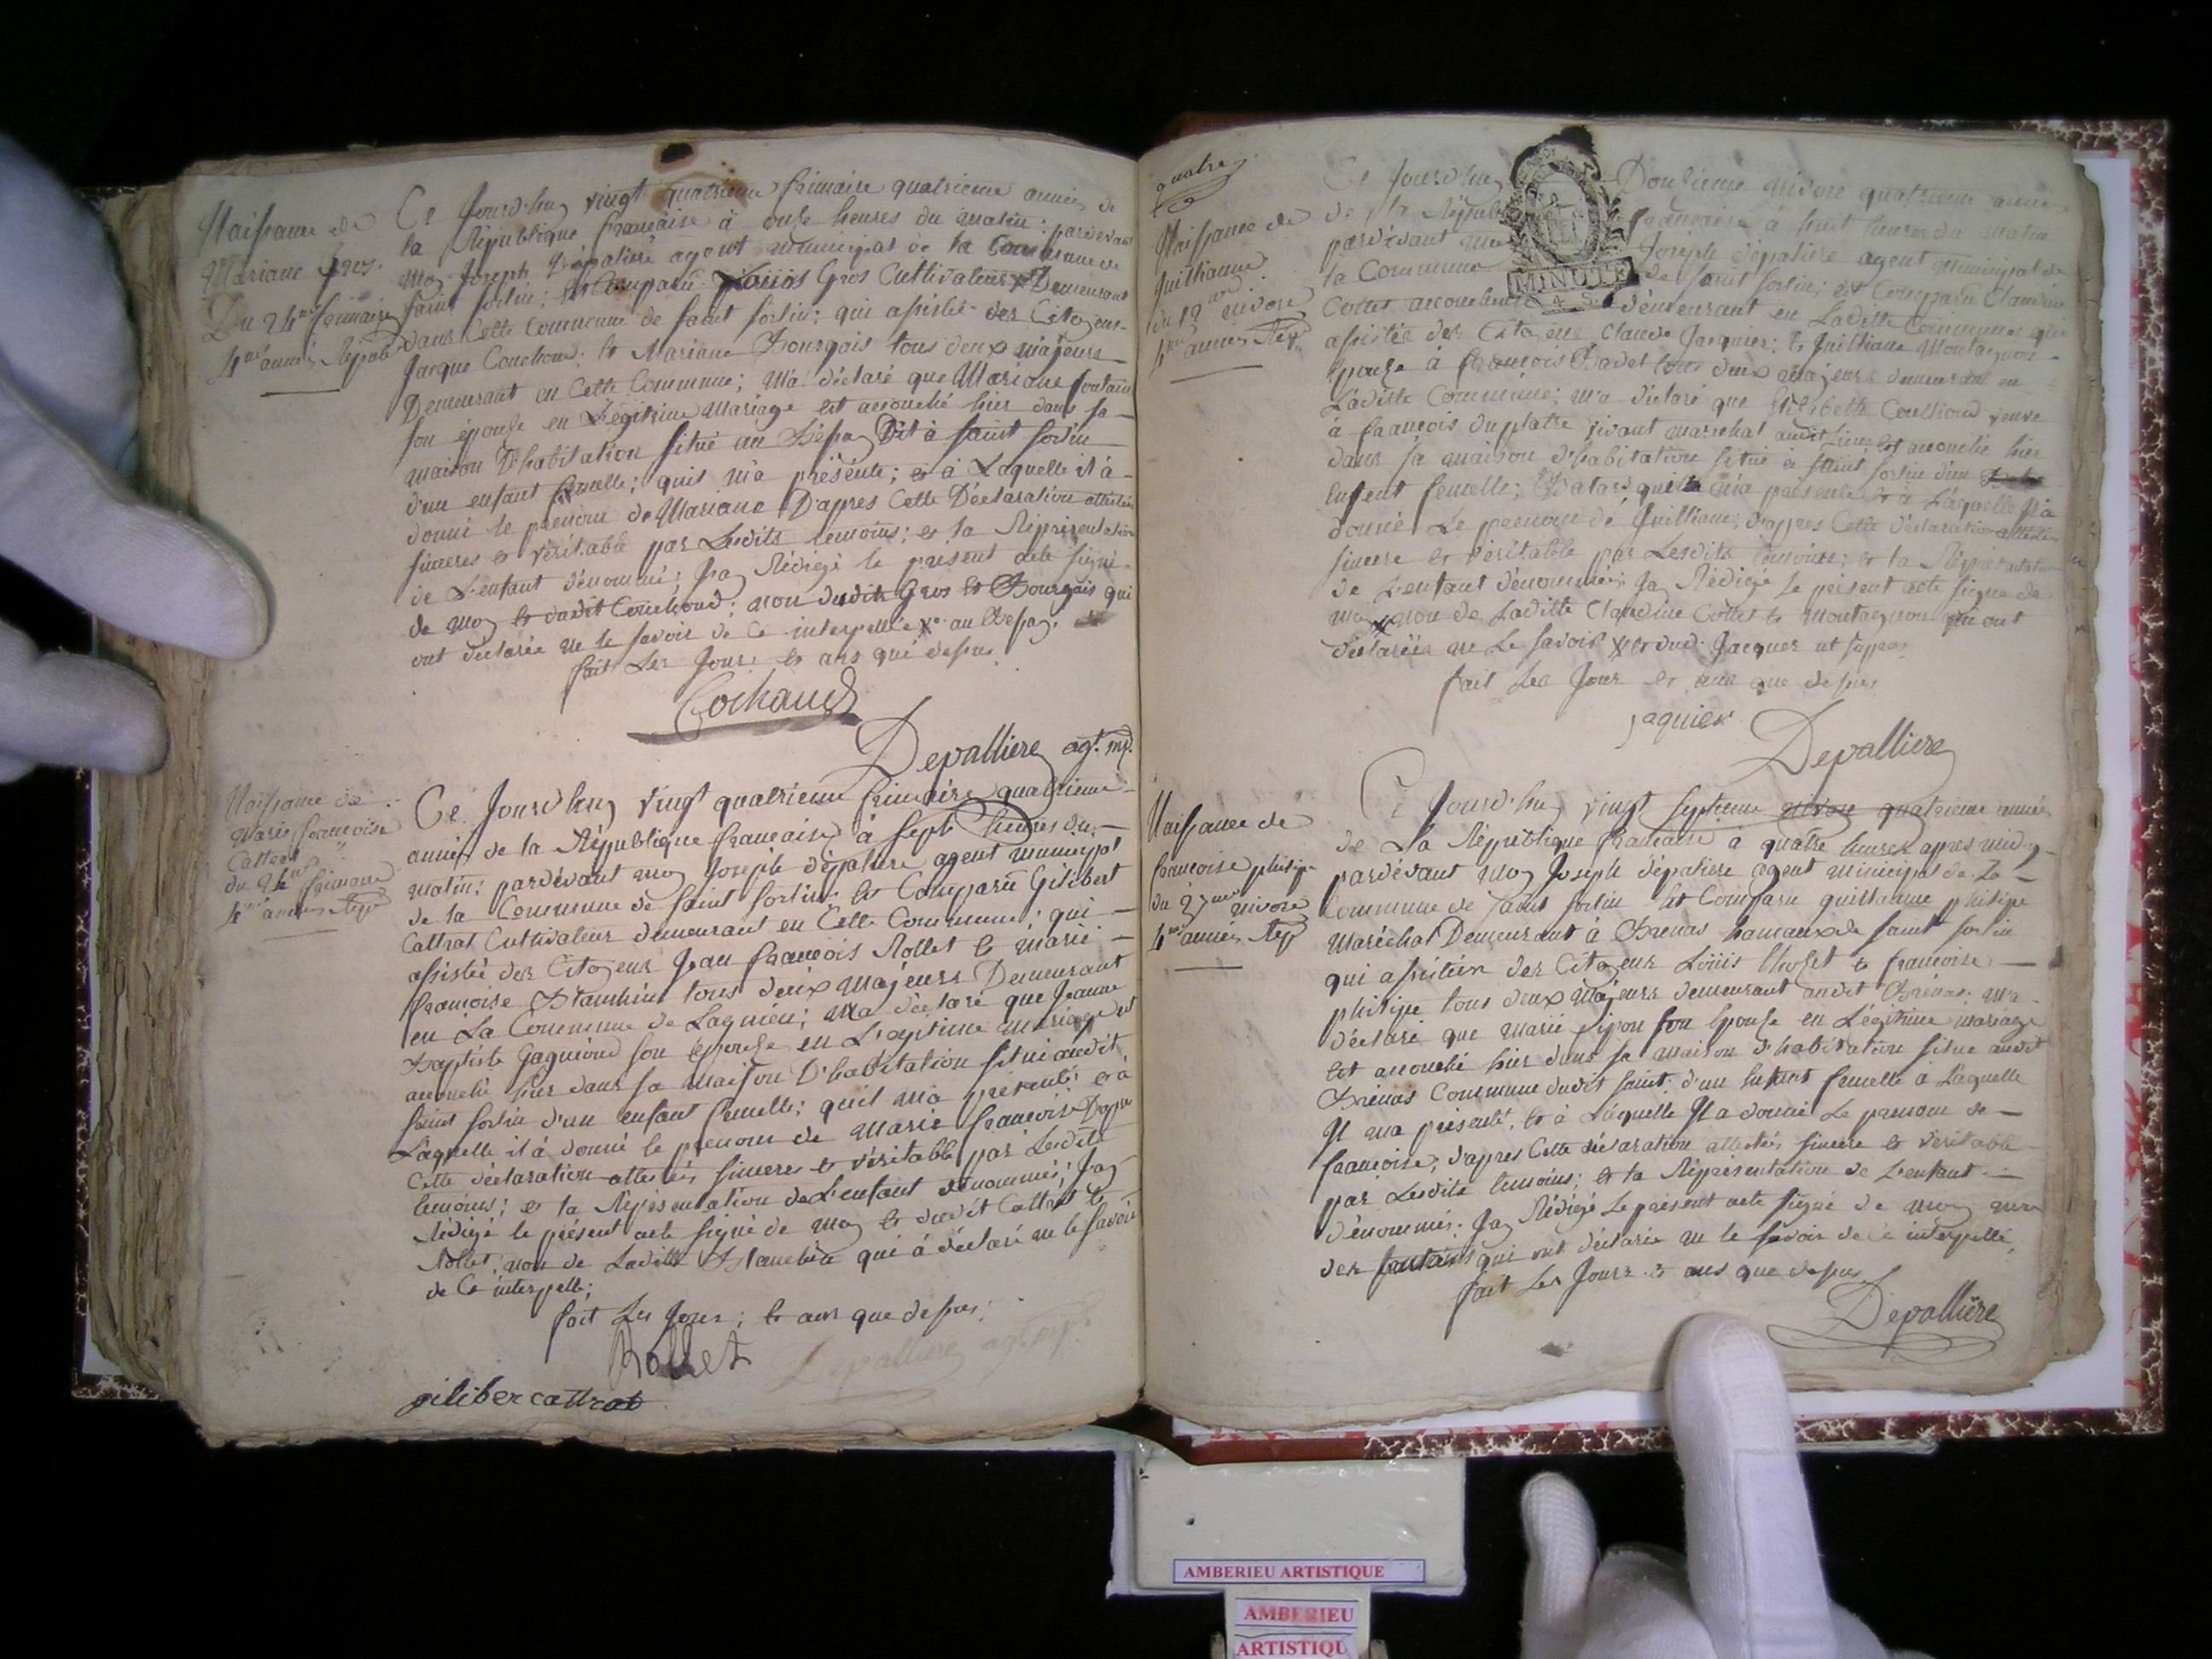 Naissance de
Mariane Gros.
Du 24me frimaire
4me année Répub
Ce Jourd'huy vingt quatrieme frimaire quatrieme année de
la République francaise à onze heures du matin: pardevant
moy Joseph Dépaliere agent municipal de la Commune de
saint sorlin; est Comparu Loüis Gros Cultivateur x Demeurant
dans Cette Commune de saint sorlin; qui assistée des Citoyens
Jacque Couchoud: et Mariane Bourgois tous deux majeurs
Demeurant en Cette Commune; m'a déclaré que Mariane fontaine
son épouse en Légitime Mariage est accouché hier dans sa
maison D'habitation situé au Dépay Dit à saint sorlin
d'un enfant femelle; quis m'a présenté; et à Laquelle il à
donné le prenom de Mariane D'apres Cette Déclaration attestée
sinceres et véritable par Lesdits temoins; et la Répresentation
de L'enfant dénommé; Jay Rédigé le present acte signé
de moy et dudit Couchoud; non dudit Gros et Bourgois qui
ont déclarée ne le savoir de Ce interpellée x au Depay.
fait Les Jour et ans que dessus
Cochaud
Depalliere agt. mp.
Naissance de
Marie francoise
Cattrat
du 24me frimaire
4me année Rep
Ce Jourd'huy vingt quatrieme frimaire quatrieme
année de la République francaise à sept heures du
matin; pardévant moy Joseph dépaliere agent municipal
de la Commune de saint sorlin; est Comparu Gilibert
Cattrat Cultivateur demeurant en Cette Commune; qui
assistée des Citoyens Jean francois Rollet et Marie
francoise Blanchin tous deux majeurs Demeurant
en La Commune de Lagnieu; m'a déclaré que Jeanne
Baptiste Gagnioud son epouse en Légitime mariage est
accouché hier dans sa maison D'habitation situé audit
saint sorlin d'un enfant femelle; quil m'a présenté; et à
Laquelle il à donné le prenom de Marie francoise D'apres
Cette déclaration attestée sinceres et véritable par Lesdits
temoins; et la Répresentation de L'enfant dénommé; Jay
Rédigé le présent acte signé de moy et dudit Cattrat et
Rollet; non de Laditte Blanchin qui à déclaré ne le savoir
de Ce interpellé;
fait Les Jour; et ans que dessus.
Rollet
Depalliere agt mp
giliber cattrat
quatre
Naissance de
Juillianne.
du 12me nivose
4me année Rep
Ce Jourd'huy Douzieme nivose quatrieme année
de la République francaise à huit heures du matin
pardévant moy Joseph dépaliere agent municipal de
la Commune de saint sorlin; est Comparu Claudine
Cottet accoucheuse demeurant en Laditte Commune qui
MINUTE
4 S.
assistée des Citoyens Claude Jacquier; et Juilliane Montagnon
épouse à francois Badet tous deux majeurs demeurant en
Laditte Commune; m'a déclaré que Elisabeth Couchoud veuve
à francois duplatre vivant marechal audit lieu est accouché hier
dans sa maison d'habitation situé à saint sorlin d'un
enfent femelle; Batard; quelle m'a présenté et à Laquelle Il à
donné Le prenom de Juilliane; d'apres Cette déclaration attestée
sincere et véritable par Lesdits temoins; et la Répresentation
de L'enfant dénommée; Jay Rédigé le présent acte signé de
moy x non de Laditte Claudine Cottet et Montagnon qui ont
déclarées ne Le savoir x et dud. Jacquer
fait Les Jour et ans que dessus
jaquier
Depalliere
Naissance de
francoise philipe
du 27me nivose
4me année Rep
Ce Jourd'huy vingt septieme nivose quatrieme année
de La République francaise à quatre heures apres midy
pardévant moy Joseph dépaliere agent municipal de La
Commune de saint sorlin est Comparu guilliaume philipe
Maréchal Demeurant à Brenas hamaux de saint sorlin
qui assistée des Citoyens Loüis Cholet et francoise
philipe tous deux Majeurs demeurant audit Brenas; m'a
déclaré que Marie pipon son épouse en Légitime mariage
est accouché hier dans sa maison d'habitation situé audit
Brenas Commune dudit saint; d'un enfant femelle à Laquelle
Il m'a présenté, et à Laquelle Il a donné Le prenom de
francoise; d'apres Cette déclaration attestée sincere et véritable
par Lesdits temoins; et la Répresentation de L'enfant
dénommée. Jay Rédigé Le présent acte signé de moy non
des qui ont déclarée ne le savoir de Ce interpellé
fait Les Jour et ans que dessus
Depallière
AMBERIEU ARTISTIQUE
AMBERIEU
ARTISTIQU